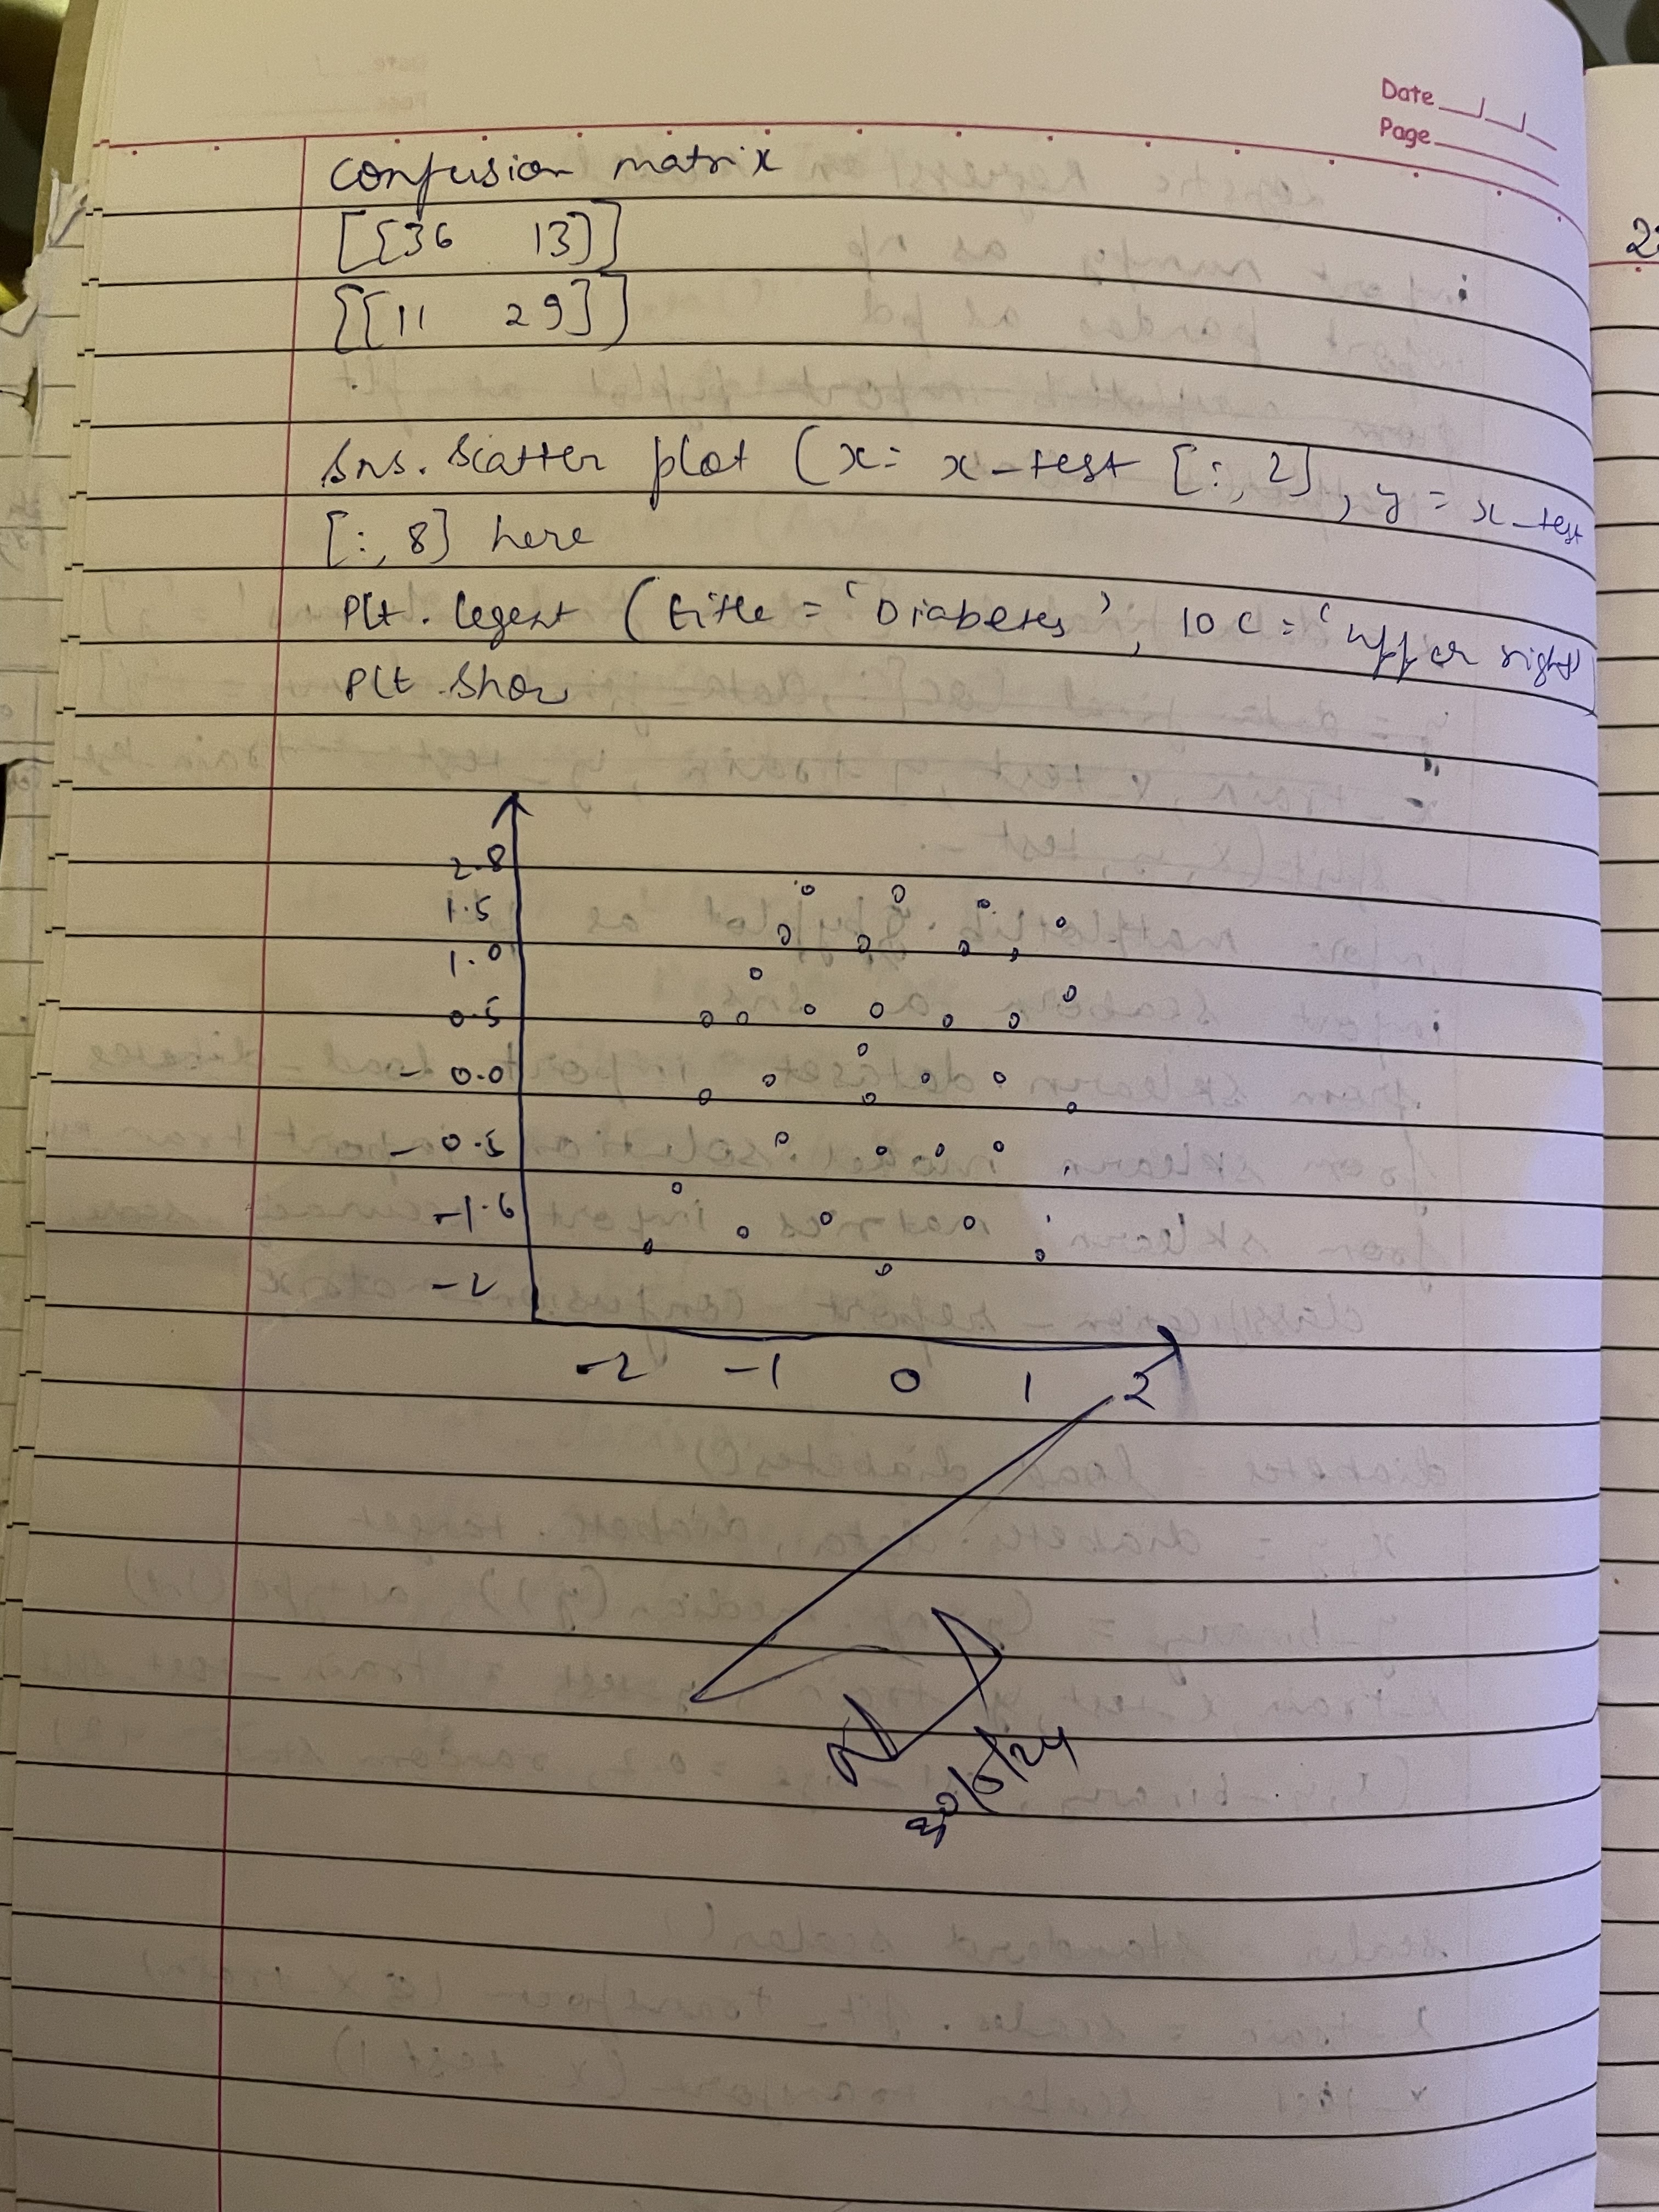 Date
Page
confusion matrix
[[36 13]]
[[11 29]]
Sns. Scatter plot (x= x-test [:, 2], y = x-test
[:, 8] here
Plt. legent (title = 'Diabetes', loc = 'upper right)
Plt. Show
2.8
1.5
1.0
0.5
- 0.0
- 0.5
-1.6
-2
-2 -1 0 1 2
30/5/24